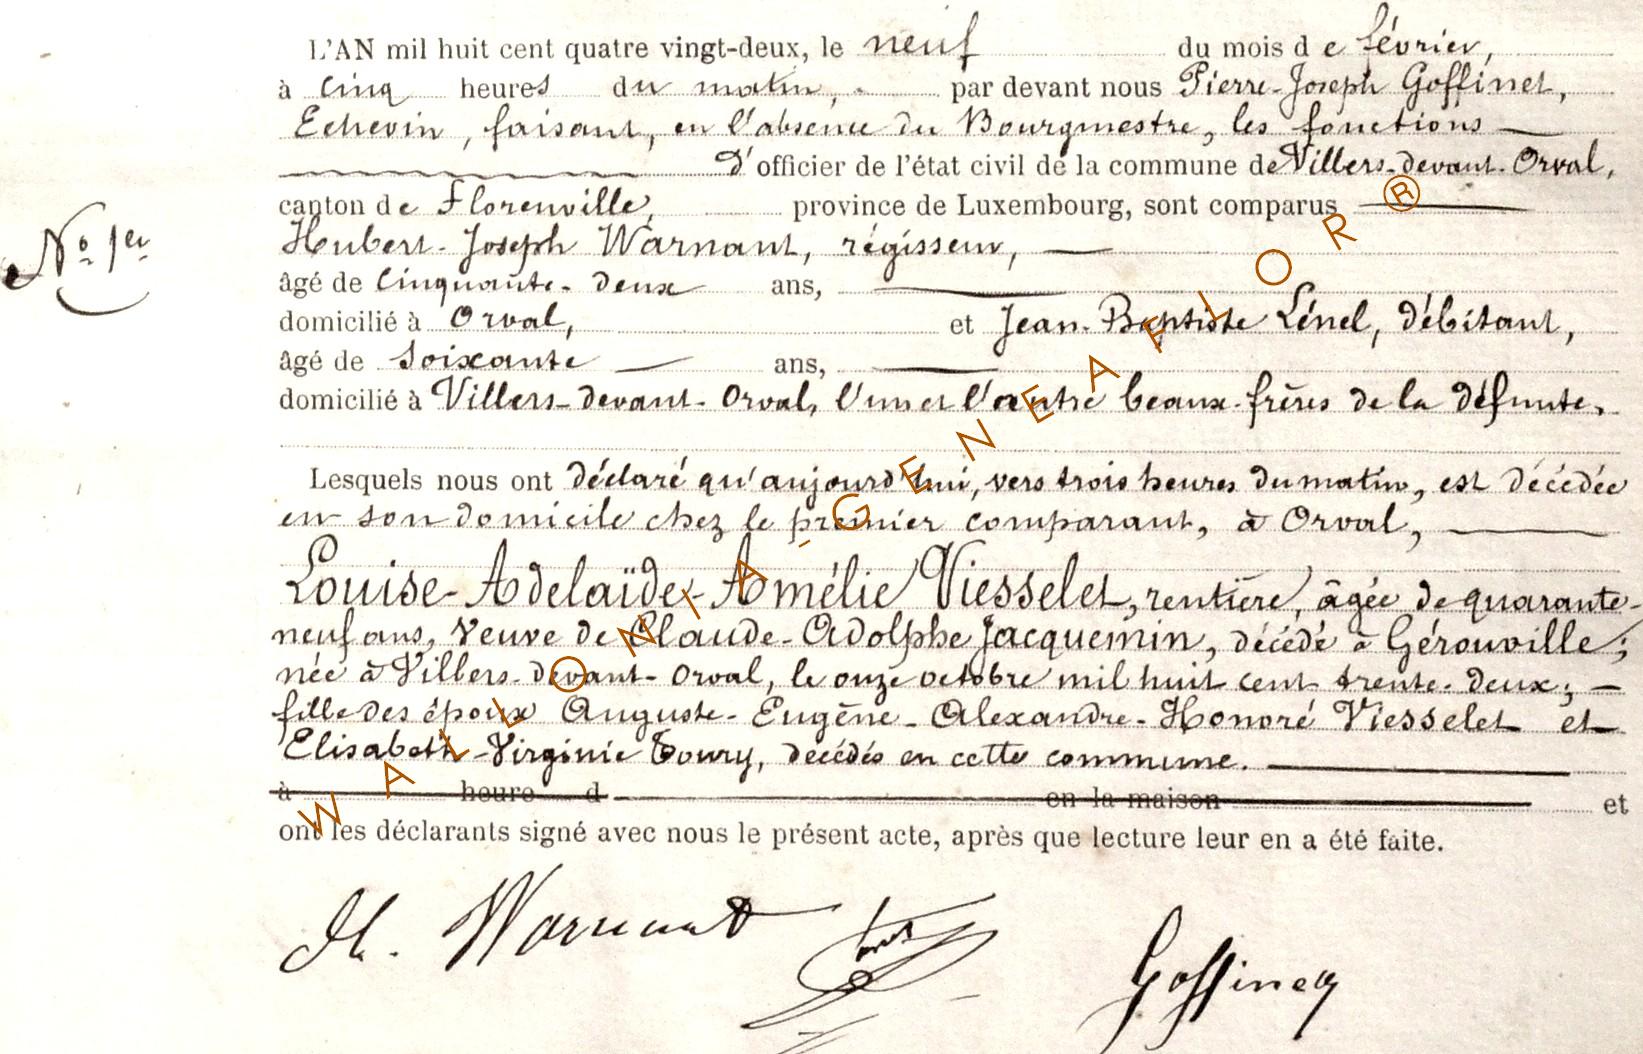 L'AN mil huit cent quatre vingt-deux, le neuf du mois de février,
à cinq heures du matin, par devant nous Pierre-Joseph Goffinet,
Echevin, faisant, en l'absence du Bourgmestre, les fonctions
d'officier de l'état civil de la commune de Villers-devant-Orval,
canton de Florenville, province de Luxembourg, sont comparus
N° 1er
Hubert-Joseph Warnant, régisseur,
âgé de cinquante-deux ans,
domicilié à Orval, et Jean-Baptiste Lénel, débitant,
âgé de soixante ans,
domicilié à Villers-devant-Orval, l'un et l'autre beaux-frères de la défunte.
Lesquels nous ont déclaré qu'aujourd'hui, vers trois heures du matin, est décédée
en son domicile chez le premier comparant, à Orval,
Louise-Adelaïde-Amélie Viesselet, rentière, âgée de quarante-
neuf ans, veuve de Claude-Adolphe Jacquemin, décédé à Gérouville;
née à Villers-devant-Orval, le onze octobre mil huit cent trente-deux;
fille des époux Auguste-Eugène-Alexandre-Honoré Viesselet et
Elisabeth-Virginie Toury, décédés en cette commune.
à heure d en la maison et
ont les déclarants signé avec nous le présent acte, après que lecture leur en a été faite.
H. Warnant Goffinet
WALLONIA-GENEAFLOR®